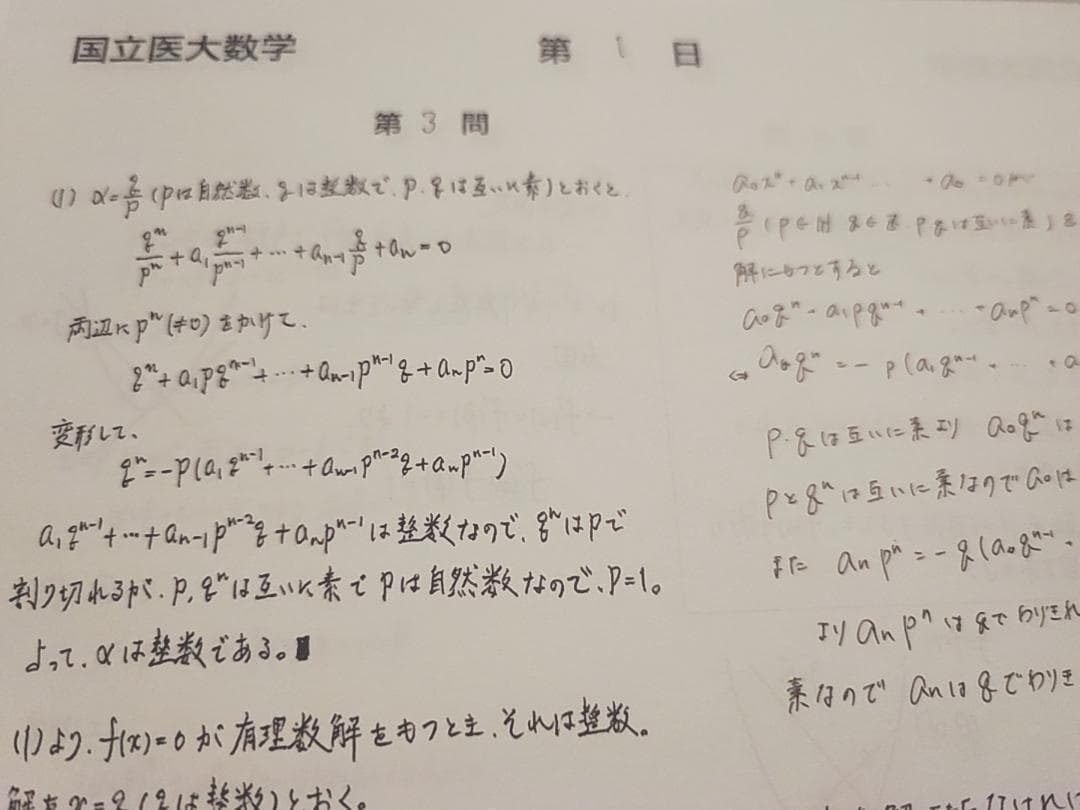 国立医大数学 第 1 日
第 3 問
(1) α=q/p (pは自然数、qは整数で、p、qは互いに素)とおくと、
q^n/p^n + a₁ q^{n-1}/p^{n-1} + … + a_{n-1} q/p + a_n = 0
両辺に p^n(≠0) をかけて、
q^n + a₁pq^{n-1} + … + a_{n-1}p^{n-1}q + a_np^n = 0
変形して、
q^n = -p(a₁q^{n-1} + … + a_{n-1}p^{n-2}q + a_np^{n-1})
a₁q^{n-1} + … + a_{n-1}p^{n-2}q + a_np^{n-1} は整数なので、q^nはpで
割り切れるが、p, q^nは互いに素で pは自然数なので、p=1。
よって、αは整数である。
(1)より、f(x)=0 が有理数解をもつとき、それは整数。
解を x=q (qは整数)とおく。
a₀x^n + a₁x^{n-1} … + a₀ = 0
q/p (p∈ℕ q∈ℤ p.qは互いに素)を
解にもつとすると
a₀q^n + a₁pq^{n-1} + … + a_np^n = 0
⇔ a₀q^n = - p(a₁q^{n-1} + … + a
p.qは互いに素より a₀q^n は
pとq^nは互いに素なので a₀は
また a_np^n = -q(a₀q^{n-1} +
より a_np^n は qでわりきれ
素なので a_nはqでわりき